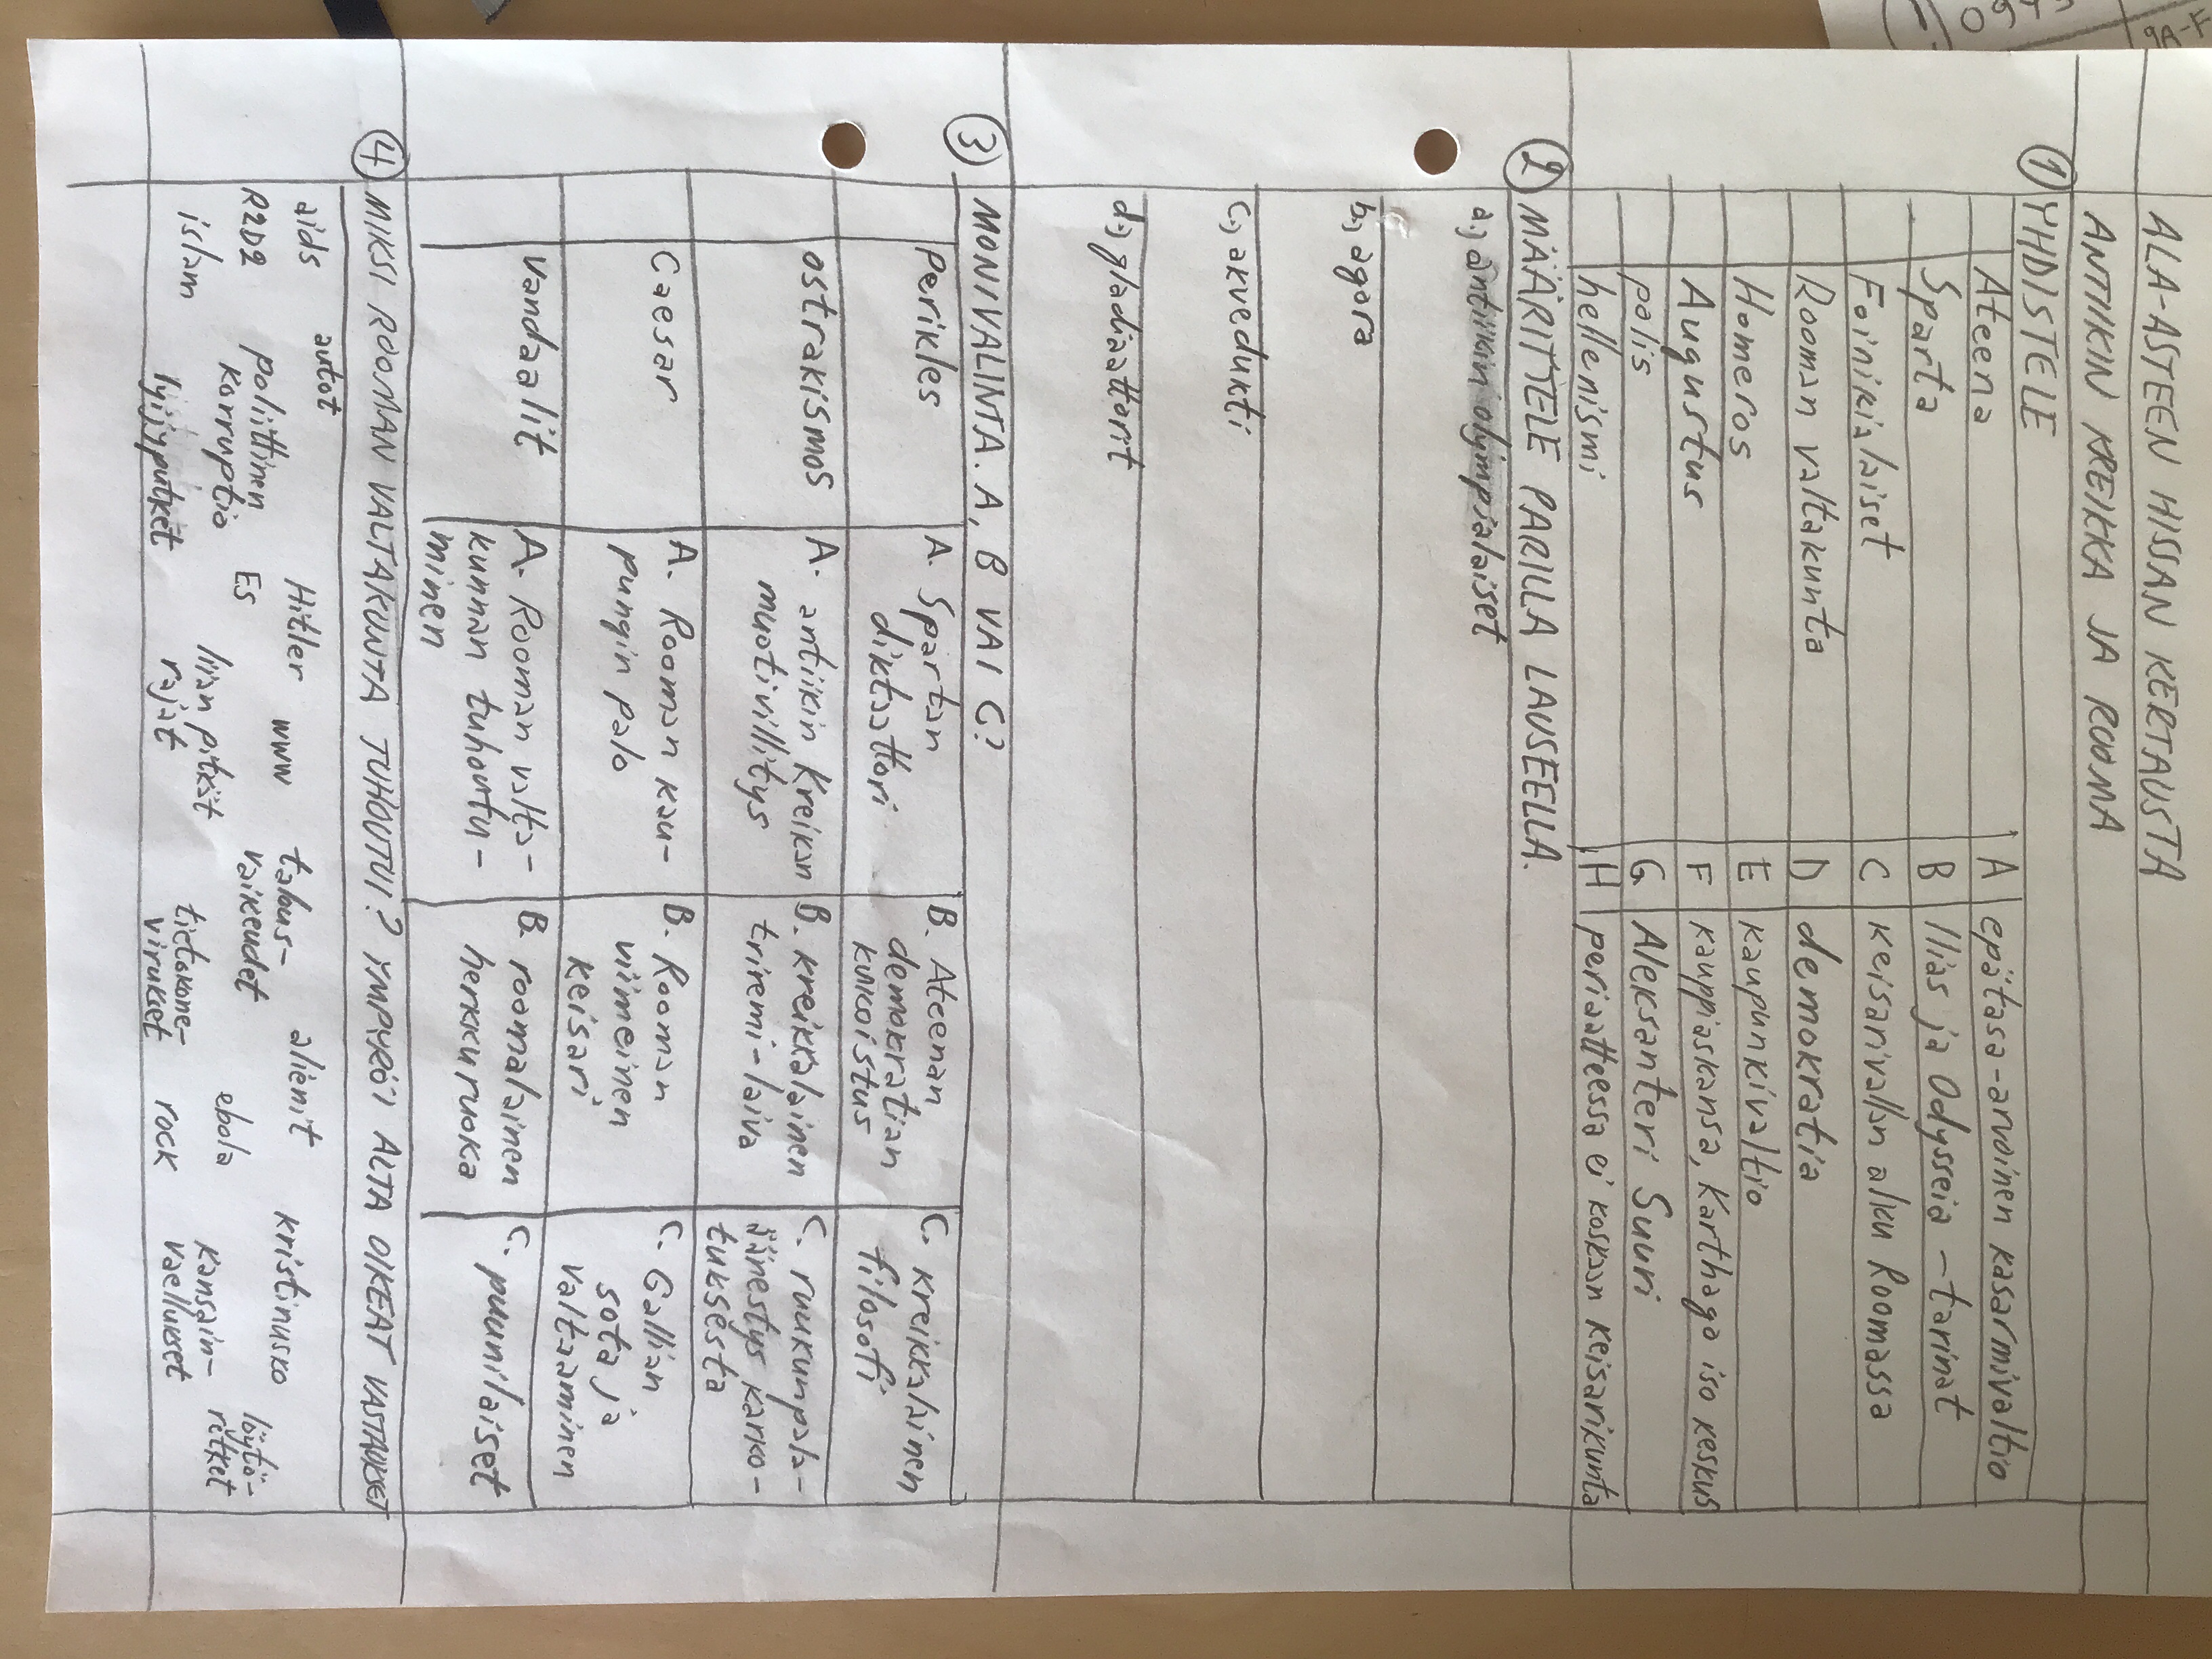 ALA-ASTEEN HISSAN KERTAUSTA
ANTIIKIN KREIKKA JA ROOMA
① YHDISTELE
Ateena A epätasa-arvoinen kasarmivaltio
Sparta B Ilias ja Odysseia -tarinat
Foinikialaiset C keisarivallan alku Roomassa
Rooman valtakunta D demokratia
Homeros E kaupunkivaltio
Augustus F kauppiaskansa, Karthago iso keskus
polis G Aleksanteri Suuri
hellenismi H periaatteessa ei koskaan keisarikunta
② MÄÄRITTELE PARILLA LAUSEELLA.
a.) antiikin olympialaiset
b.) agora
c.) akvedukti
d.) gladiaattorit
③ MONIVALINTA. A, B VAI C?
Perikles
A. Spartan
diktaattori
B. Ateenan
demokratian
kukoistus
C. kreikkalainen
filosofi
ostrakismos
A. antiikin Kreikan
muotivillitys
B. kreikkalainen
triremi-laiva
C. ruukunpala-
äänestys karko-
tuksesta
Caesar
A. Rooman kau-
pungin palo
B. Rooman
viimeinen
keisari
C. Gallian
sota ja
valtaaminen
vandaalit
A. Rooman valta-
kunnan tuhoutu-
minen
B. roomalainen
herkkuruoka
C. puunilaiset
④ MIKSI ROOMAN VALTAKUNTA TUHOUTUI? YMPYRÖI ALTA OIKEAT VASTAUKSET
aids autot Hitler www talous-
vaikeudet alienit kristinusko löytö-
retket
R2D2 poliittinen
korruptio ES ebola kansain-
vaellukset
islam lyijyputket liian pitkät
rajat tietokone-
virukset rock